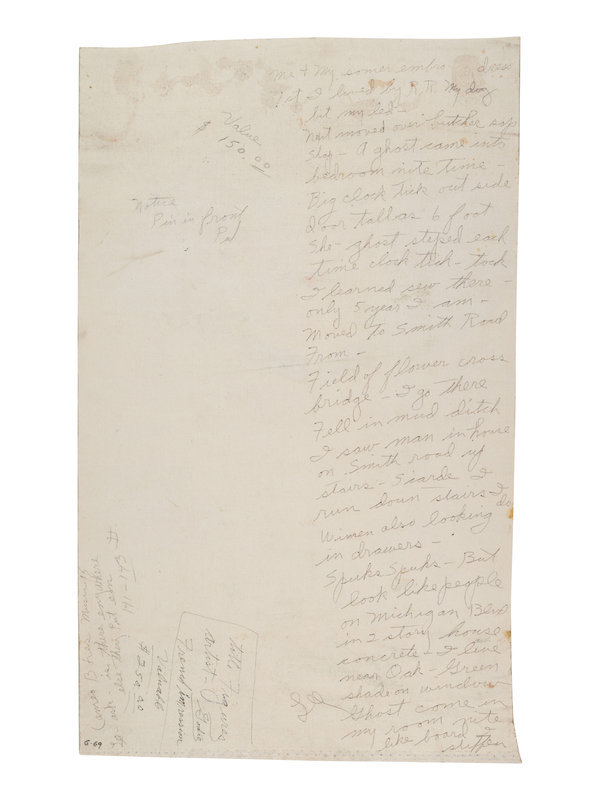 Me + My somer embro dress
I lived by R.R. My dog
bit my leg -
Next moved over butcher sop
Stay - A ghost came into
bedroom nite time -
Big clock tick out side
door tall as 6 foot
She - ghost steped each
time clock tick - tock
I learned sew there -
only 5 year I am -
Moved to Smith Road
From -
Field of flower cross
bridge - I go there
Fell in mud ditch
I saw man in house
on Smith road up
stairs - Scarde I
run down stairs I do
Wimen also looking
in drawers -
Spuks Spuks - But
look like people
on Michigan Blvd
in 2 story house
concrete - I live
near Oak - Green
shade on window -
Ghost come in
my room nite
like board I
stiffen
Value
$ 150.00
Notice
Pin in front
Tall Figures
Artist -
Valuable
$250.00
is there somewhere
else
G-69